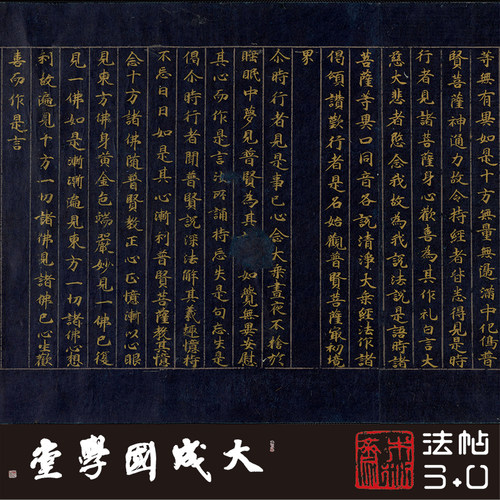 等無有異如是十方無量無邊滿中化為普
賢菩薩神通力故令持經者皆悉得見是時
行者見諸菩薩身心歡喜為其作礼白言大
慈大悲者愍念我故為我說法說是語時諸
菩薩等異口同音各說清淨大乘經法作諸
偈頌讚歎行者是名始觀普賢菩薩最初境
界
尒時行者見是事已心念大乘晝夜不捨於
睡眠中夢見普賢為其如覺無異安慰
其心而作是言汝所誦持忘失是句忘失是
偈尒時行者聞普賢說深法解其義趣憶持
不忘日日如是其心漸利普賢菩薩教其憶
念十方諸佛隨普賢教正心正憶漸以心眼
見東方佛身黃金色端嚴妙見一佛已復
見一佛如是漸漸遍見東方一切諸佛心想
利故遍見十方一切諸佛見諸佛已心生歡
喜而作是言
大成國學堂
法帖
3.0